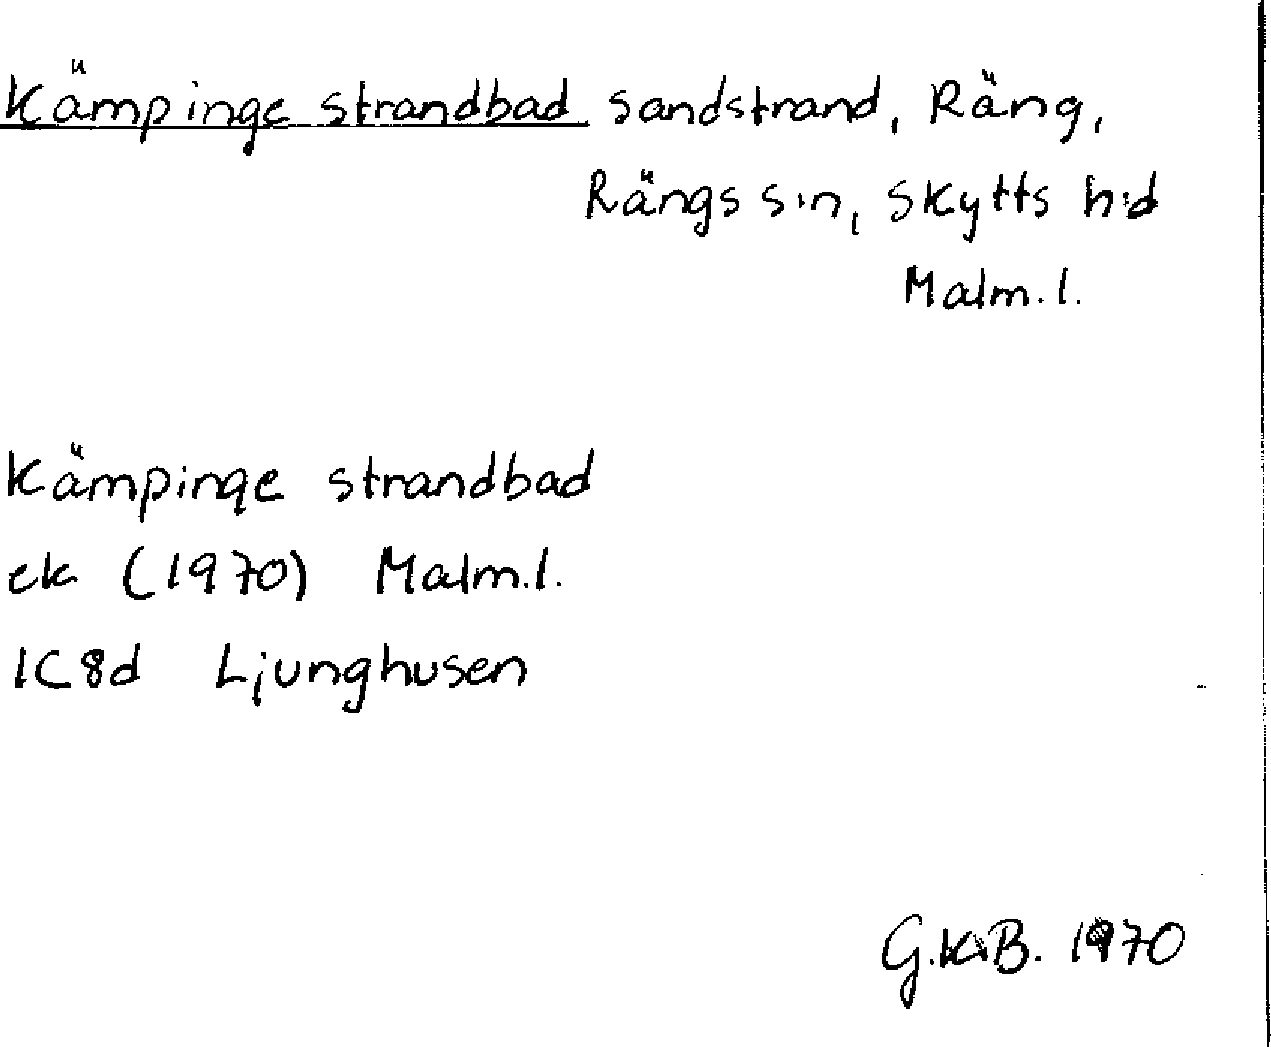 Kämpinge strandbad sandstrand, Räng,
Rängs sn, Skytts hd
Malm.l.
Kämpinge strandbad
ek (1970) Malm.l.
1C8d Ljunghusen
G.K.B. 1970